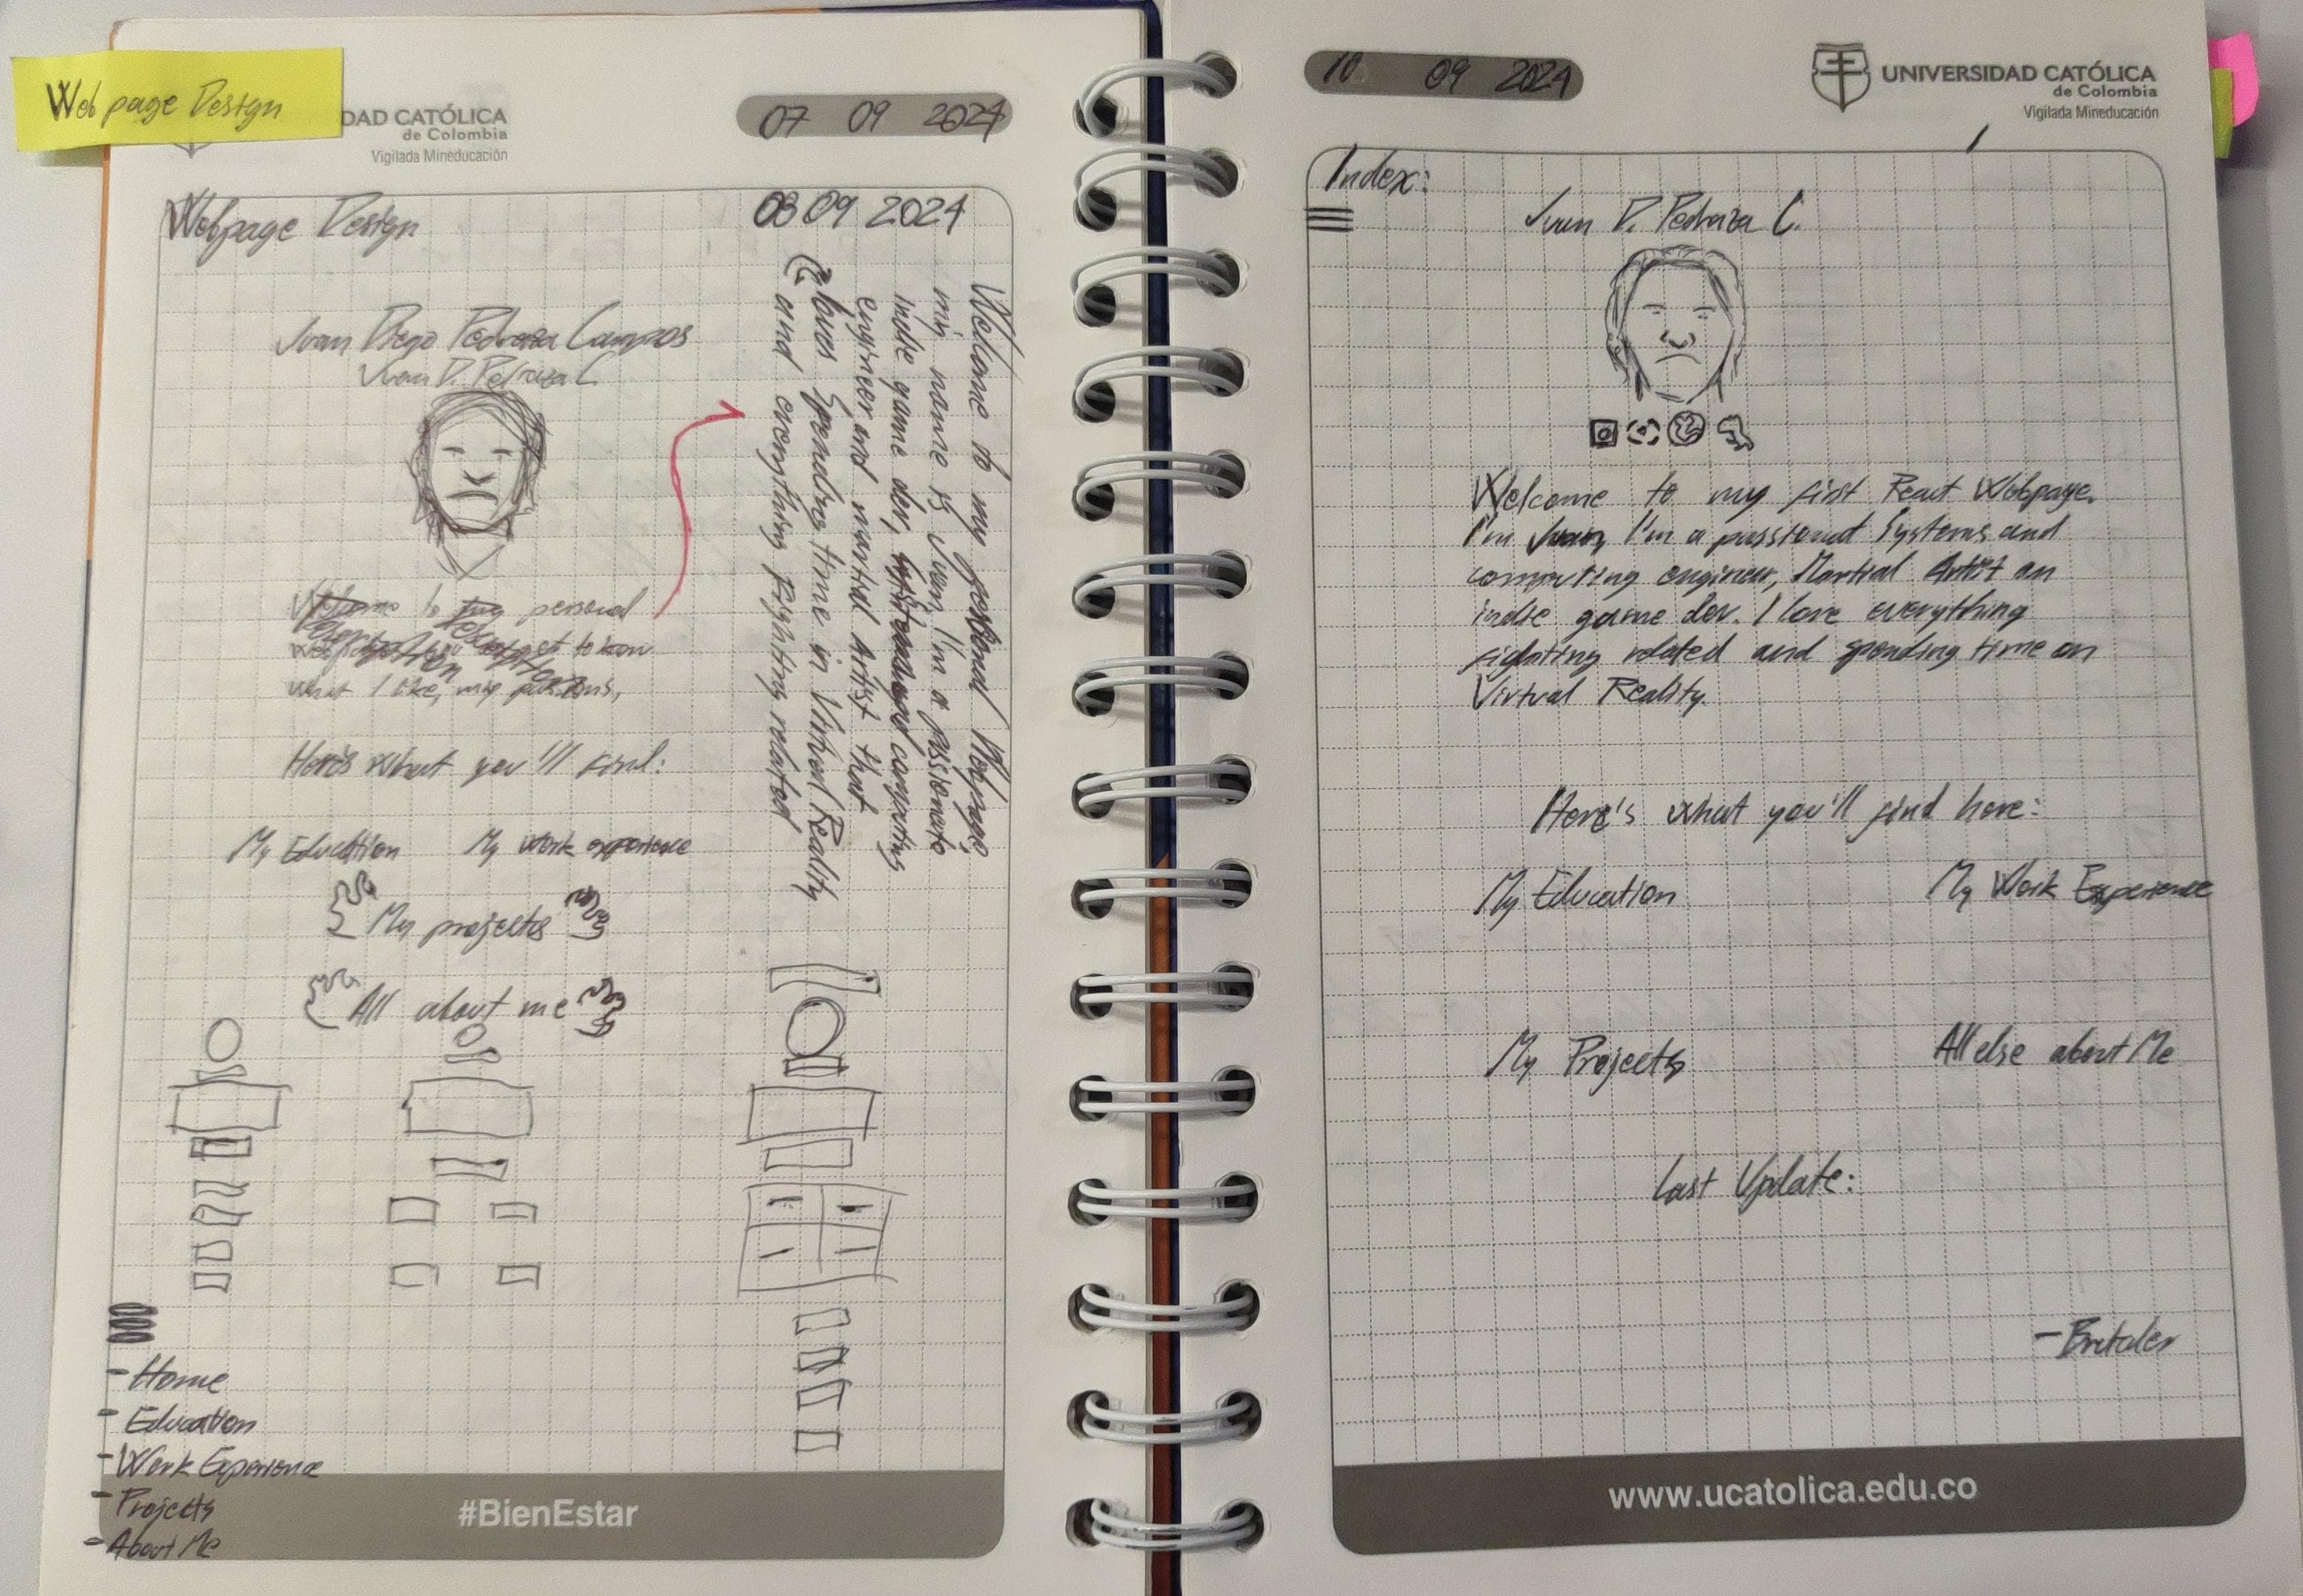 Web page Design
DAD CATÓLICA
de Colombia
Vigilada Mineducación
07 09 2024
Webpage Design
08 09 2024
Juan Diego Pedraza Campos
Juan D. Pedraza C
to personal
what I like, my passions,
Welcome to my personal Webpage,
my name is Juan, I'm a passionate
indie game dev, computing
engineer and martial Artist that
loves Spending time in Virtual Reality
and everything fighting related
Here's what you'll find:
My Education My work experience
My projects
All about me
- Home
- Education
- Work Experience
- Projects
- About Me
#BienEstar
10 09 2024
UNIVERSIDAD CATÓLICA
de Colombia
Vigilada Mineducación
Index:
Juan D. Pedraza C.
Welcome to my first React Webpage.
I'm Juan, I'm a passionat Systems and
computing engineer, Martial Artist an
indie game dev. I love everything
fighting related and spending time on
Virtual Reality.
Here's what you'll find here:
My Education My Work Experience
My Projects All else about Me
Last Update:
www.ucatolica.edu.co